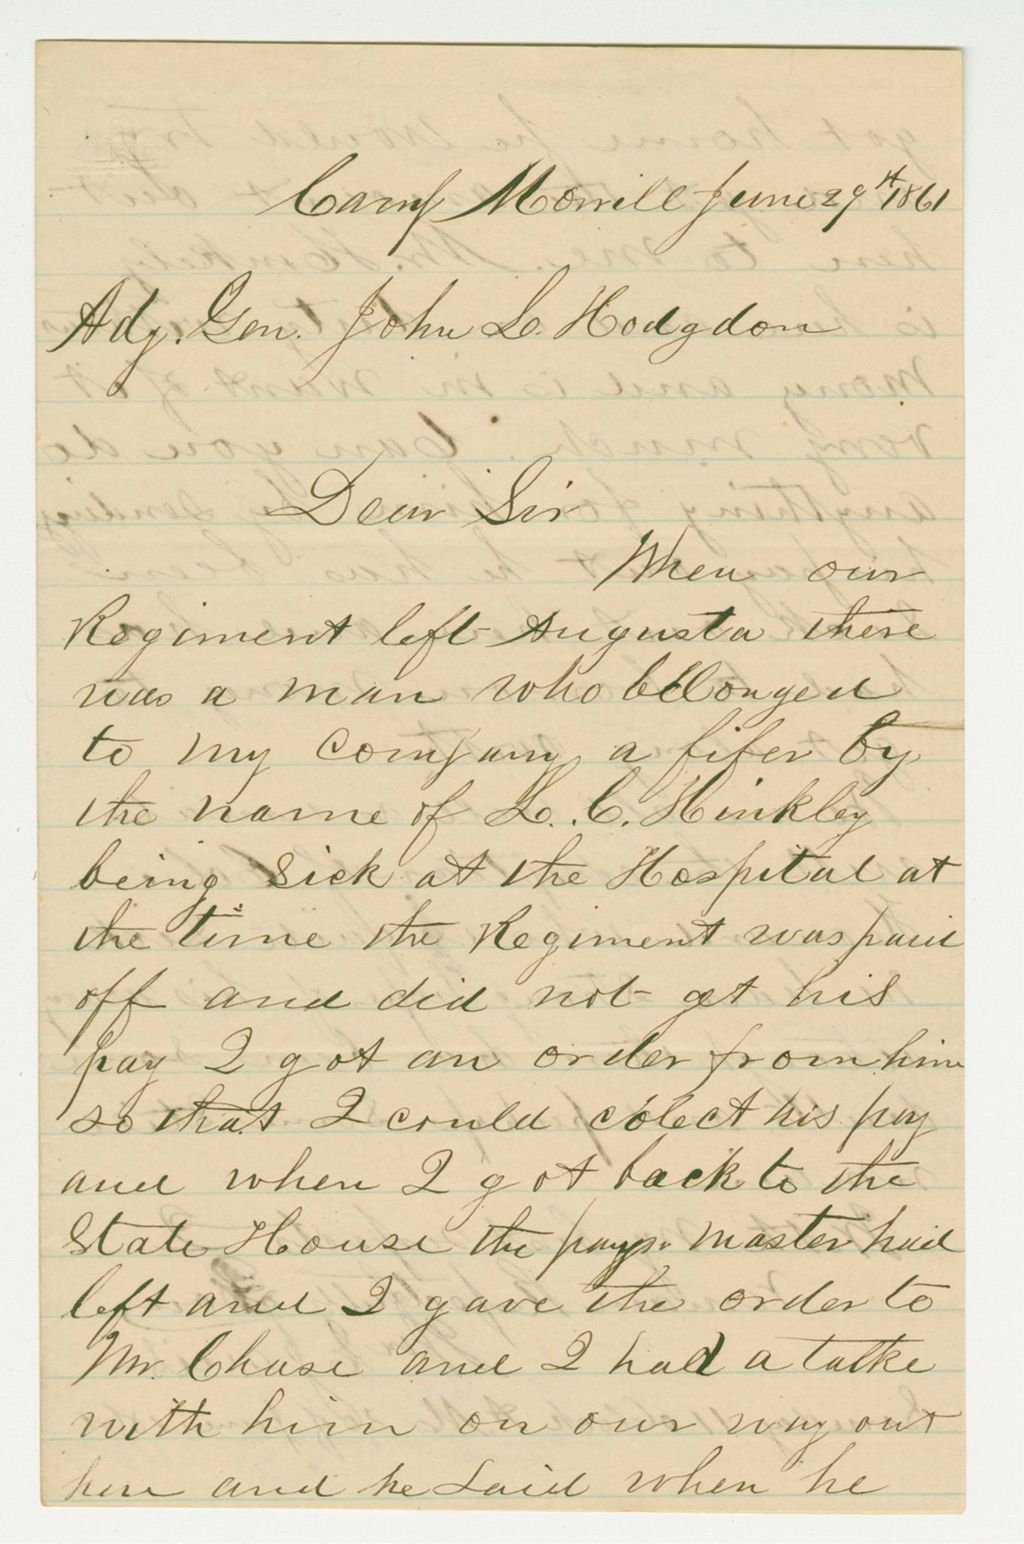 Camp Morrill June 29th 1861
Adj. Gen. John L. Hodgdon
Dear Sir
When our
Regiment left Augusta there
was a man who bellonged
to my company a fifer by
the name of L. C. Hinkley
being sick at the Hospital at
the time the Regiment was paid
off and did not get his
pay I got an order from him
so that I could colect his pay
and when I got back to the
State House the pay master had
left and I gave the order to
Mr. Chase and I had a talke
with him on our way out
here and he said when he